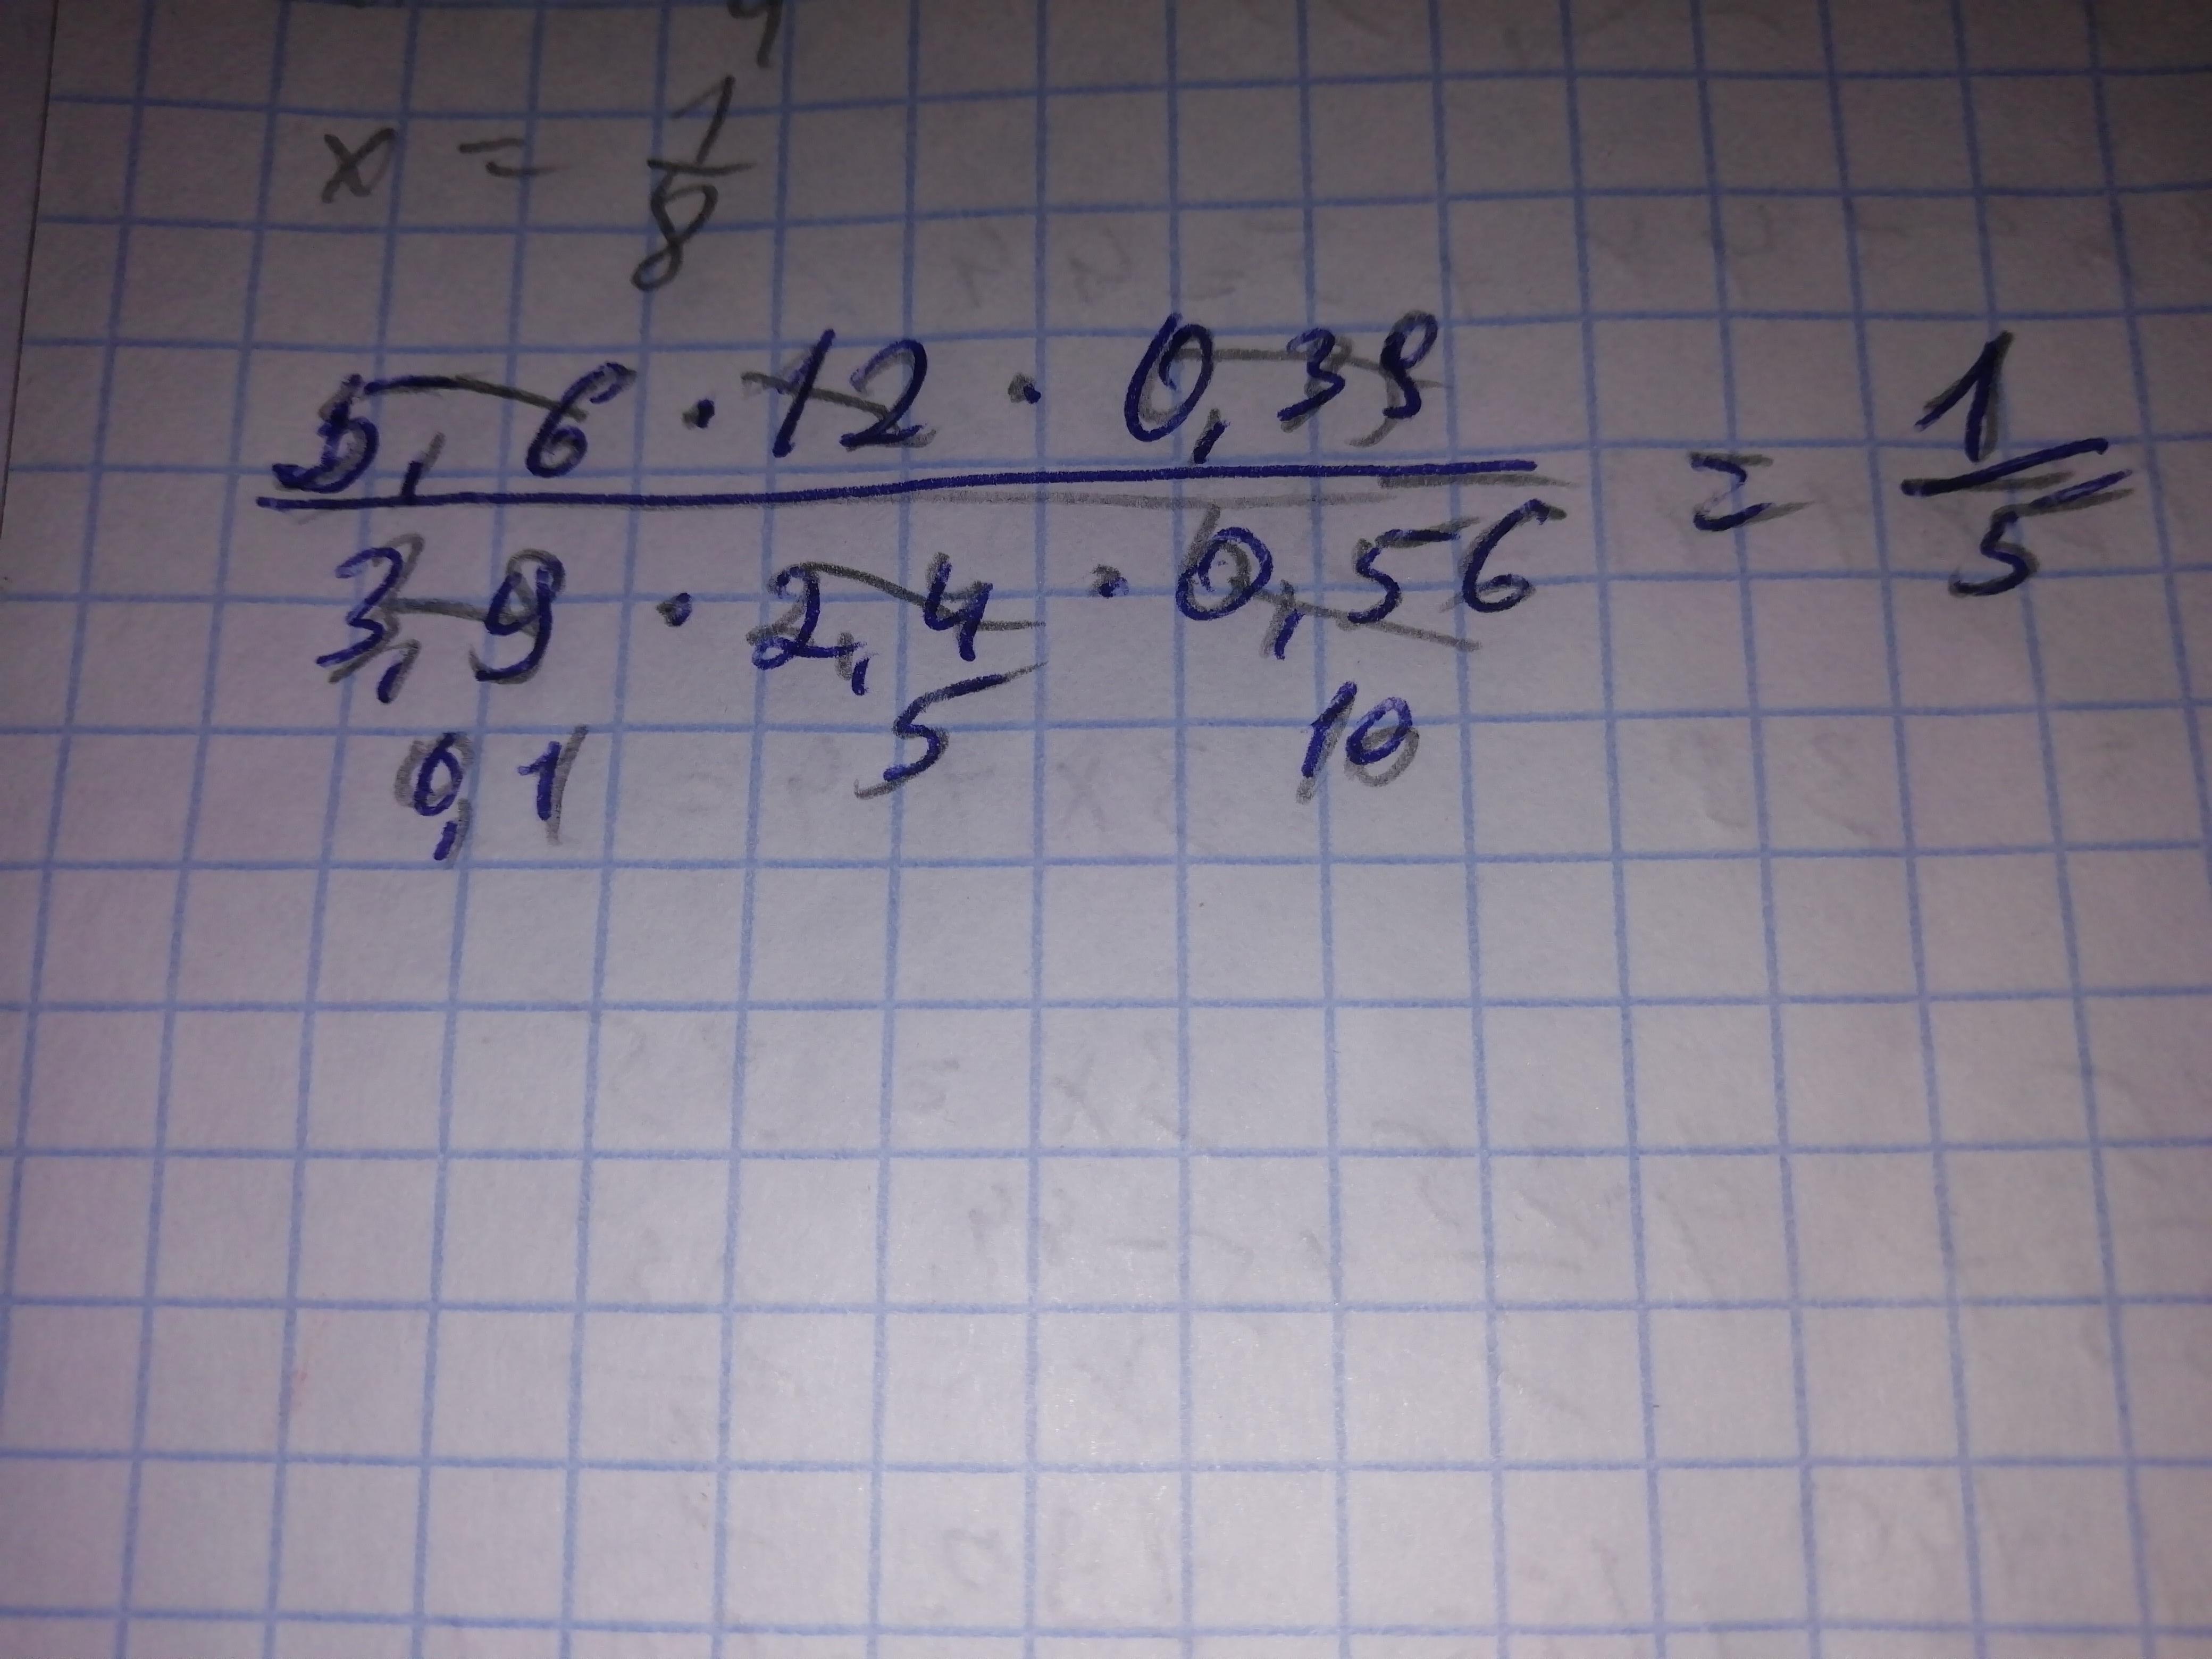 x = 1/8
5,6 · 12 · 0,39
3,9 · 2,4 · 0,56
= 1/5
0,1 5 10